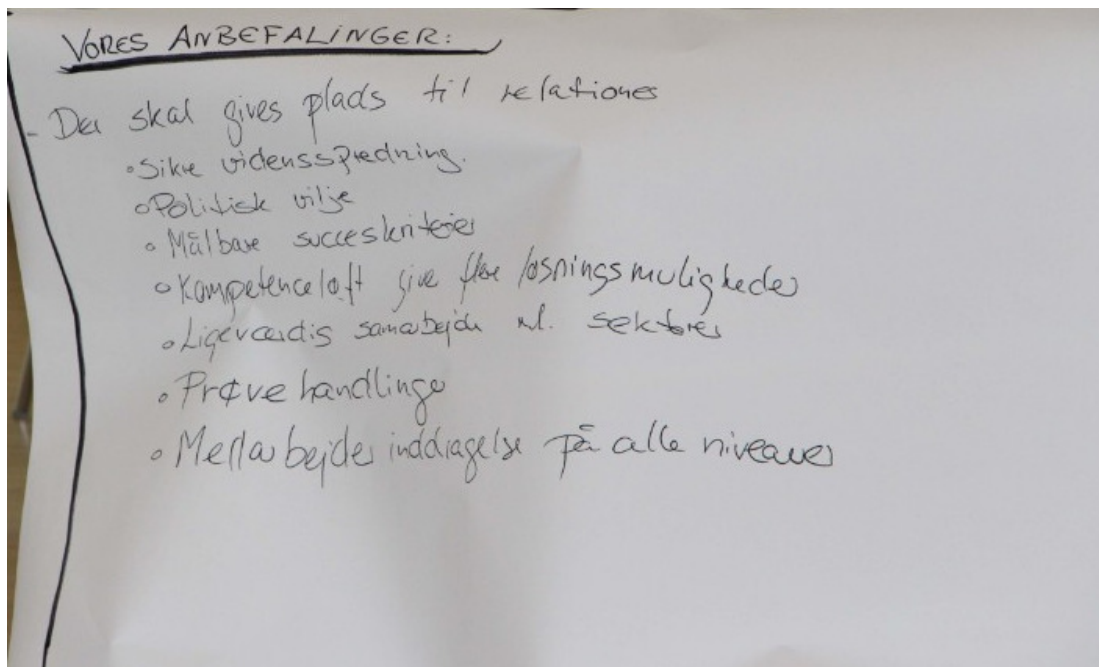 VORES ANBEFALINGER:
- Der skal gives plads til relationer
• Sikre vidensspredning.
• Politisk vilje
• Målbare succeskriterier
• Kompetenceløft give flere løsningsmuligheder
• Ligeværdig samarbejde ml. sektorer
• Prøvehandlinger
• Medarbejder inddragelse på alle niveauer